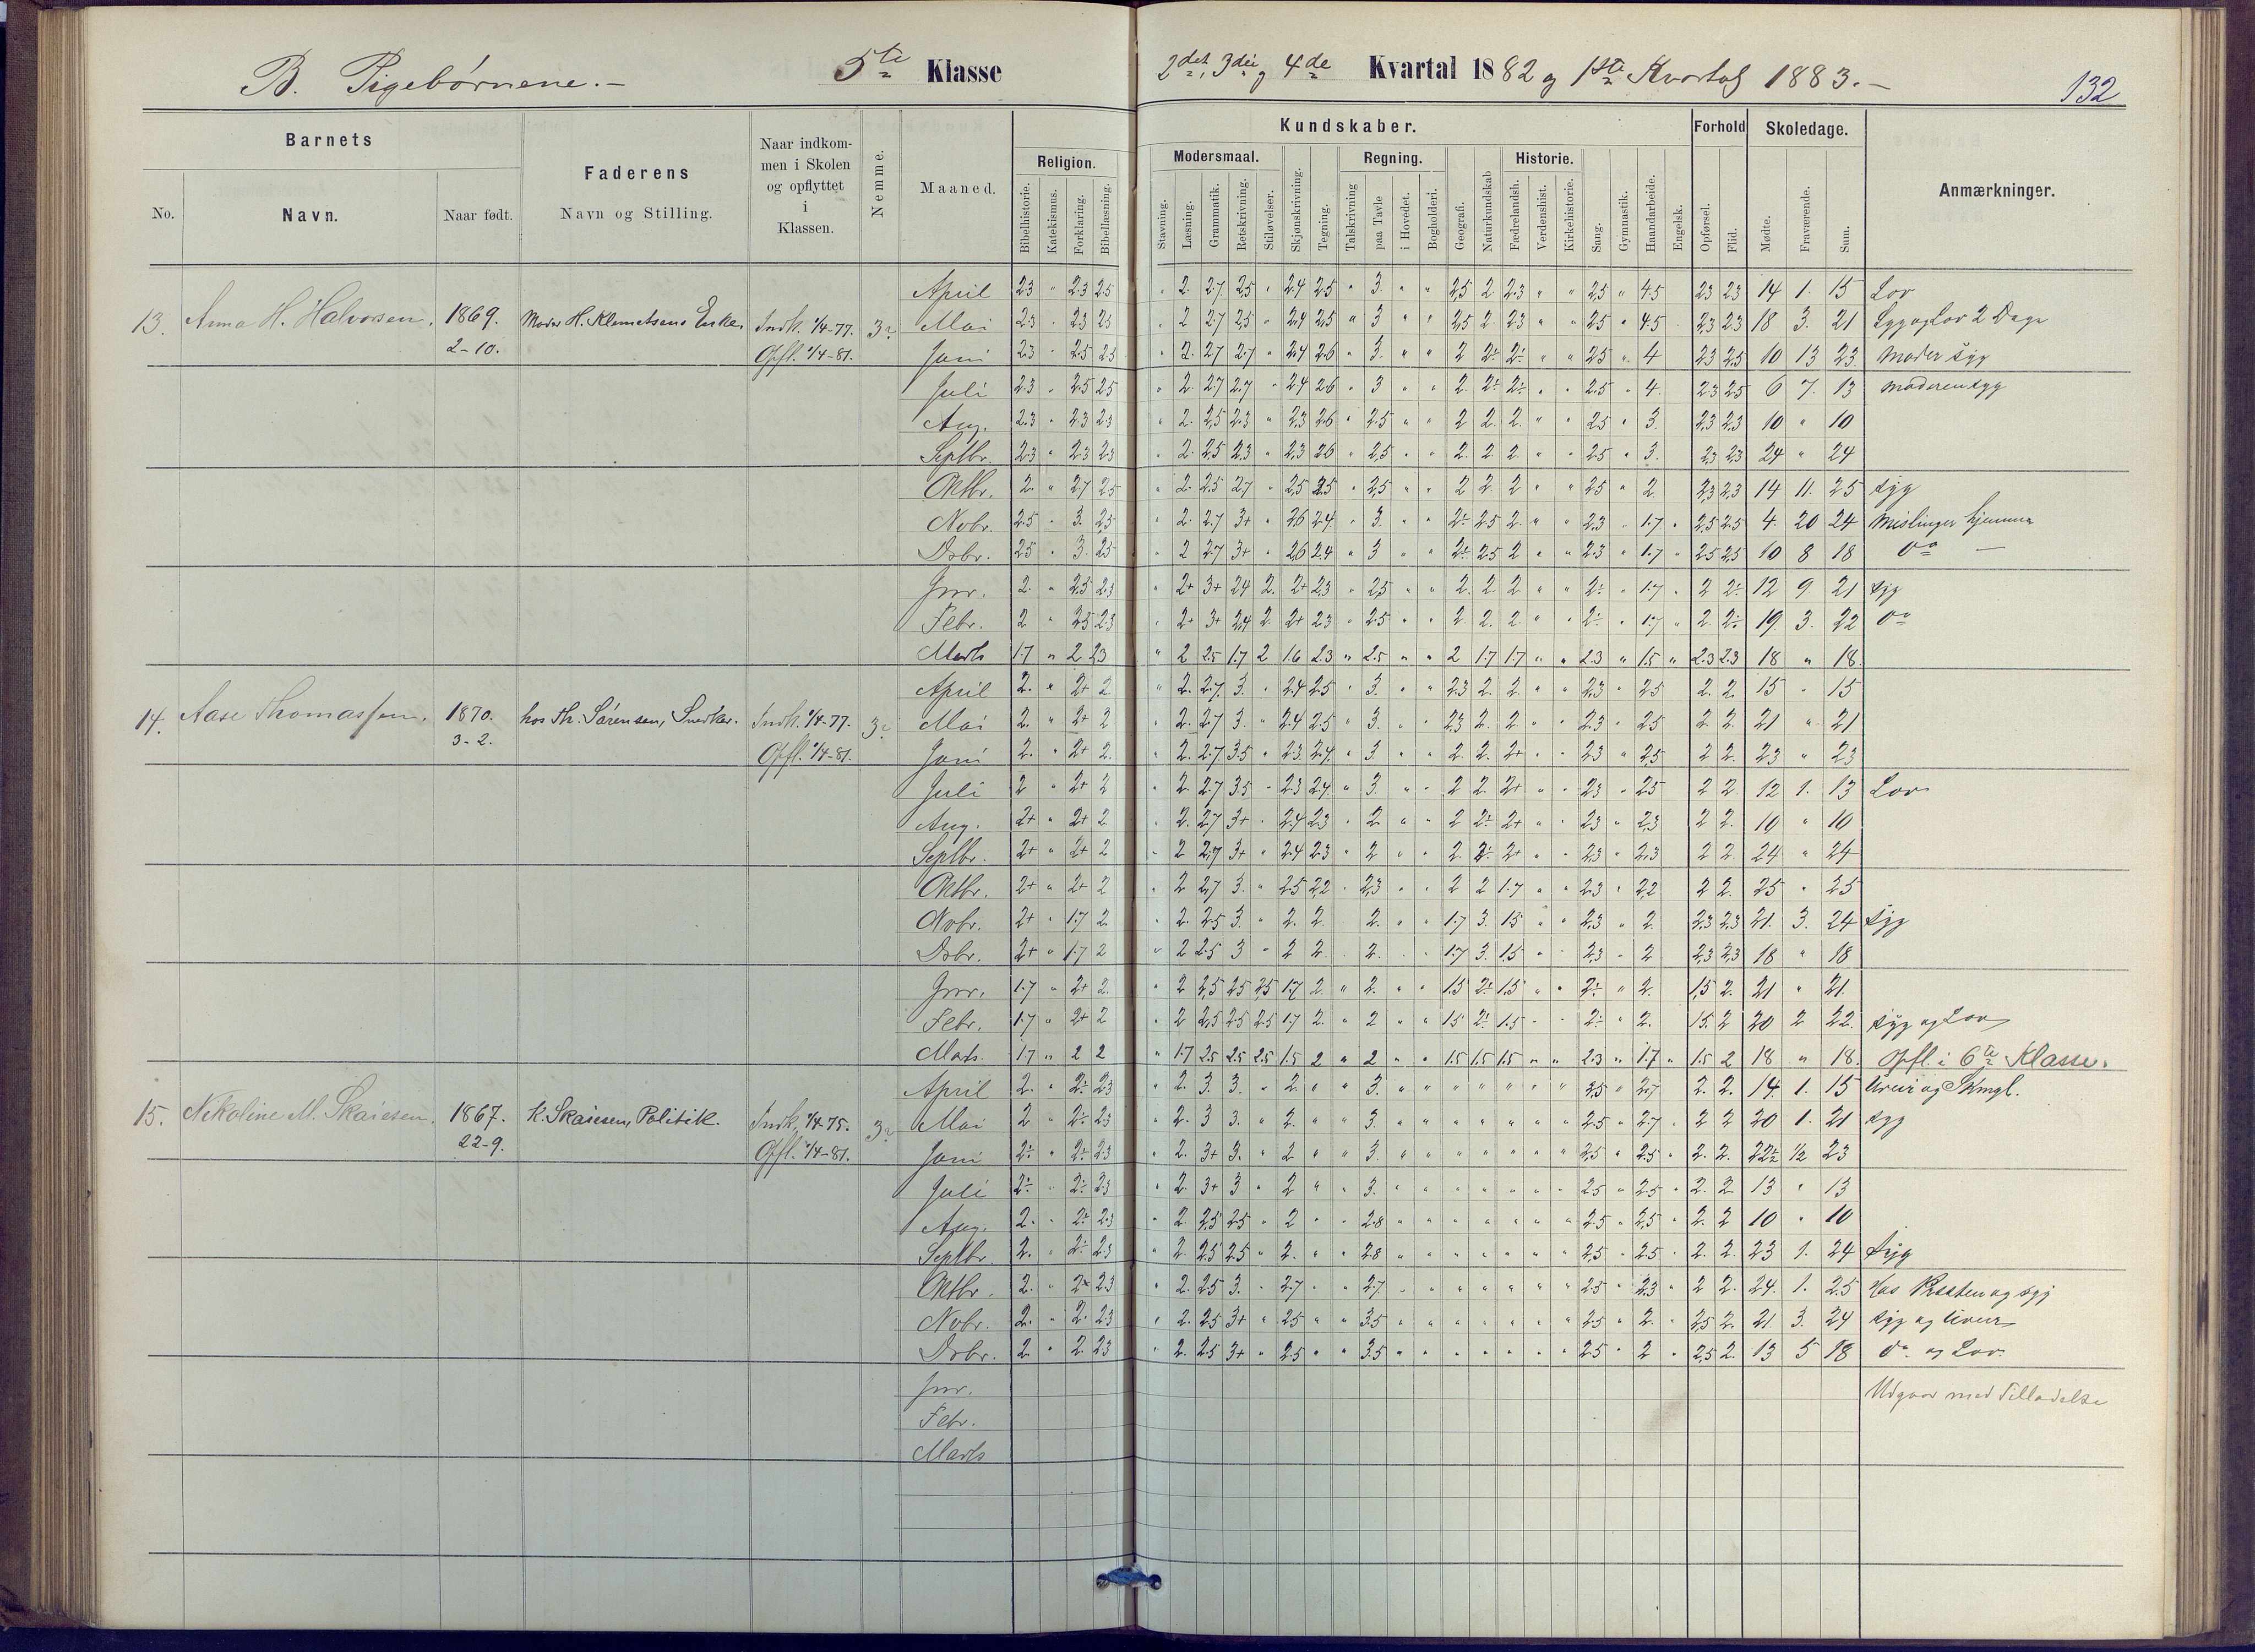 B. Pigebørnene.- 5te Klasse 2det, 3die og 4de Kvartal 1882 og 1ste Kvartal 1883.-
132
Barnets Faderens Naar indkommen i Skolen og opflyttet i Klassen. Nemme. Maaned. Kundskaber. Forhold Skoledage. Anmærkninger.
No. Navn. Naar født. Navn og Stilling. Religion. Modersmaal. Regning. Historie.
Bibelhistorie. Katekismus. Forklaring. Bibellæsning. Stavning. Læsning. Grammatik. Retskrivning. Stiløvelser. Skjønskrivning. Tegning. Talskrivning paa Tavle i Hovedet. Bogholderi. Geografi. Naturkundskab Fædrelandsh. Verdenshist. Kirkehistorie. Sang. Gymnastik. Haandarbeide. Engelsk. Opførsel. Flid. Mødte. Fraværende. Sum.
April 2.3 " 2.3 2.5 " 2 2.7 2.5 " 2.4 2.5 " 3. " " 2.5 2 2.3 " " 2.5 " 4.5 2.3 2.3 14 1. 15 Lov
13. Anna H. Halvorsen. 1869. Moder H. Klemetsens Enke. Indk. 1/4-77. 3 Mai 2.3 " 2.3 2.5 " 2 2.7 2.5 " 2.4 2.5 " 3 " " 2.5 2 2.3 " " 2.5 " 4.5 2.3 2.3 18 3. 21 Syg og Lov 2 Dage
2-10. Opfl. 1/4-81. Juni 2.3 " 2.5 2.5 " 2. 2.7 2.7 " 2.4 2.6 " 3. " " 2 2÷ 2÷ " " 2.5 " 4 2.3 2.5 10 13 23 Moder syg
Juli 2.3 " 2.5 2.5 " 2. 2.7 2.7 " 2.4 2.6 " 3 " " 2. 2÷ 2÷ " " 2.5 " 4. 2.3 2.5 6 7. 13 Moderen syg
Aug. 2.3 " 2.3 2.3 " 2. 2.5 2.3 " 2.3 2.6 " 2.5 " " 2 2. 2. " " 2.5 " 3. 2.3 2.3 10 " 10
Septbr. 2.3 " 2.3 2.3 " 2. 2.5 2.3 " 2.3 2.6 " 2.5 " " 2. 2 2 " " 2.5 " 3. 2.3 2.3 24 " 24
Oktbr. 2. " 2.7 2.5 " 2. 2.5 2.7 " 2.5 2.5 " 2.5 " " 2 2. 2 " " 2.5 " 2 2.3 2.3 14 11. 25 syg
Novbr. 2.5 " 3. 2.5 " 2. 2.7 3+ " 2.6 2.4 " 3. " " 2÷ 2.5 2. " " 2.3 " 1.7 " 2.5 2.5 4. 20 24 Mislinger hjemme
Dsbr. 2.5 " 3. 2.5 " 2 2.7 3+ " 2.6 2.4 " 3 " " 2÷ 2.5 2 " " 2.3 " 1.7 " 2.5 2.5 10 8 18 do -
Jnr. 2. " 2.5 2.3 " 2+ 3+ 2.4 2. 2+ 2.3 " 2.5 " " 2. 2. 2 " " 2÷ " 1.7 " 2 2÷ 12 9. 21 syg
Febr. 2 " 2.5 2.3 " 2+ 3+ 2.4 2 2+ 2.3 " 2.5 " " 2 2. 2 " " 2÷ " 1.7 " 2. 2÷ 19. 3. 22 do
Marts 1.7 " 2 2.3 " 2 2.5 1.7 2 1.6 2.3 " 2.5 " " 2 1.7 1.7 " " 2.3 " 1.5 " 2.3 2.3 18 " 18.
April 2. " 2+ 2 " 2. 2.7. 3. " 2.4 2.5 " 3. " " 2.3 2. 2. " " 2.3 " 2.5 2. 2. 15 " 15
14. Aase Thomassen. 1870. hos Th. Sørensen, Snedker. Indk. 1/4-77. 3 Mai 2. " 2+ 2 " 2. 2.7 3. " 2.4 2.5 " 3. " " 2.3 2. 2 " " 2.3 " 2.5 2. 2. 21 " 21
3-2. Opfl. 1/4-81. Juni 2. " 2+ 2. " 2. 2.7. 3.5 " 2.3 2.4 " 3. " " 2. 2. 2+ " " 2.3 " 2.5 2 2. 23 " 23
Juli 2 " 2+ 2 " 2. 2.7 3.5 " 2.3 2.4 " 3. " " 2 2. 2+ " " 2.3 " 2.5 2 2. 12 1. 13 Lov
Aug. 2+ " 2+ 2 " 2. 2.7 3+ " 2.4 2.3 " 2. " " 2 2÷ 2+ " " 2.3 " 2.3 2 2. 10 " 10
Septbr. 2+ " 2+ 2 " 2 2.7 3+ " 2.4 2.3 " 2 " " 2. 2÷ 2+ " " 2.3 " 2.3 2 2. 24 " 24
Oktbr. 2+ " 2+ 2 " 2 2.7 3. " 2.5 2.2 " 2.3 " " 2 2 1.7 " " 2.3 " 2.2 2 2. 25 " 25
Novbr. 2+ " 1.7 2. " 2. 2.5 3. " 2. 2. " 2. " " 1.7 3. 1.5 " " 2.3 " 2. 2.3 2.3 21. 3. 24 syg
Dsbr. 2+ " 1.7 2 " 2 2.5 3 " 2 2 " 2. " " 1.7 3. 1.5 " " 2.3 " 2 2.3 2.3 18 " 18
Jnr. 1.7 " 2+ 2. " 2 2.5 2.5 2.5 1.7 2. " 2. " " 1.5 2÷ 1.5 " " 2÷ " 2. 1.5 2. 21 " 21.
Febr. 1.7 " 2+ 2 " 2 2.5 2.5 2.5 1.7 2. " 2 " " 1.5 2÷ 1.5 " " 2÷ " 2. 1.5. 2 20 2 22. syg og Lov
Marts. 1.7 " 2 2 " 1.7 2.5 2.5 2.5 1.5 2 " 2 " " 1.5 1.5 1.5 " " 2.3 " 1.7 " 1.5 2 18 " 18. Opfl. i 6te Klasse.
April 2. " 2÷ 2.3 " 2. 3. 3. " 2. " " 3. " " " " " " " 2.5 " 2.7 2. 2. 14. 1. 15 Uveir og Skmgl.
15. Nikoline M. Skaiesen. 1867. K. Skaiesen, Politik. Indk. 1/4-75. 3 Mai 2 " 2÷ 2.3 " 2. 3 3. " 2. " " 3. " " " " " " " 2.5 " 2.7 " 2 2 20 1. 21 syg
22-9. Opfl. 1/4-81. Juni 2÷ " 2÷ 2.3 " 2. 3+ 3. " 2 " " 3. " " " " " " " 2.5 " 2.5 " 2. 2. 22½ ½ 23
Juli 2÷ " 2÷ 2.3 " 2. 3+ 3 " 2 " " 3. " " " " " " " 2.5 " 2.5 " 2. 2. 13 " 13
Aug. 2. " 2÷ 2.3 " 2. 2.5 2.5 " 2 " " 2.8 " " " " " " " 2.5 " 2.5 " 2. 2 10 " 10
Septbr. 2. " 2÷ 2.3 " 2. 2.5 2.5 " 2. " " 2.8 " " " " " " " 2.5 " 2.5 " 2. 2. 23 1. 24 syg
Oktbr. 2. " 2 2.3 " 2. 2.5 3. " 2.7 " " 2.7 " " " " " " " 2.5 " 2.3 " 2 2. 24. 1. 25 Hos Presten og syg
Novbr. 2. " 2. 2.3 " 2. 2.5 3+ " 2.5 " " 3.5 " " " " " " " 2.5 " 2. " 2.5 2. 21 3. 24 syg og Uveir
Dsbr. 2. " 2. 2.3 " 2. 2.5 3+ " 2.5 " " 3.5 " " " " " " " 2.5 " 2 " 2.5 2. 13 5 18 do og Lov.
Jnr. Udgaar med Tilladelse
Febr.
Marts